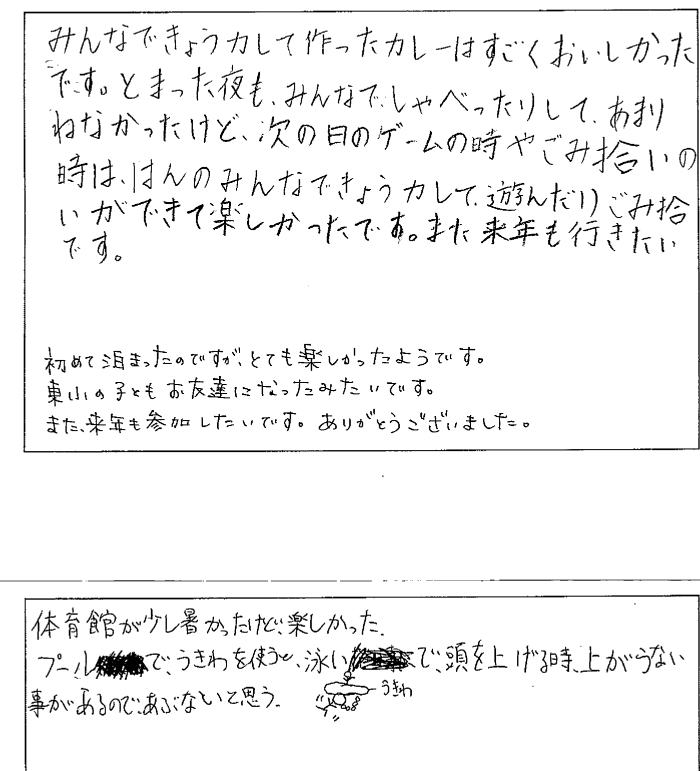 みんなできょう力して作ったカレーはすごくおいしかった
です。とまった夜も、みんなで、しゃべったりして、あまり
ねなかったけど、次の日のゲームの時やごみ拾いの
時は、はんのみんなできょう力して、遊んだりごみ拾
いができて楽しかったです。また来年も行きたい
です。
初めて泊まったのですが、とても楽しかったようです。
東小の子ともお友達になったみたいです。
また、来年も参加したいです。ありがとうございました。
体育館が少し暑かったけど、楽しかった。
プールで、うきわを使うと、泳いで、頭を上げる時、上がらない
事があるので、あぶないと思う。
うきわ